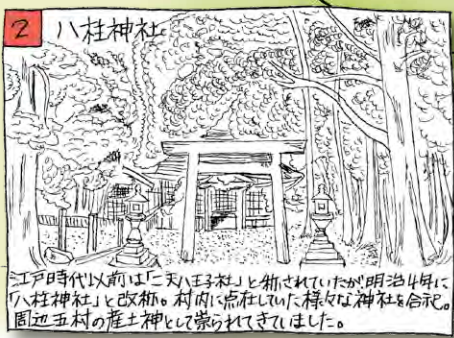 2 八柱神社
江戸時代以前は「二天八王子社」と称されていたが明治4年に
「八柱神社」と改称。村内に点在していた様々な神社を合祀。
周辺五村の産土神として崇られてきていました。